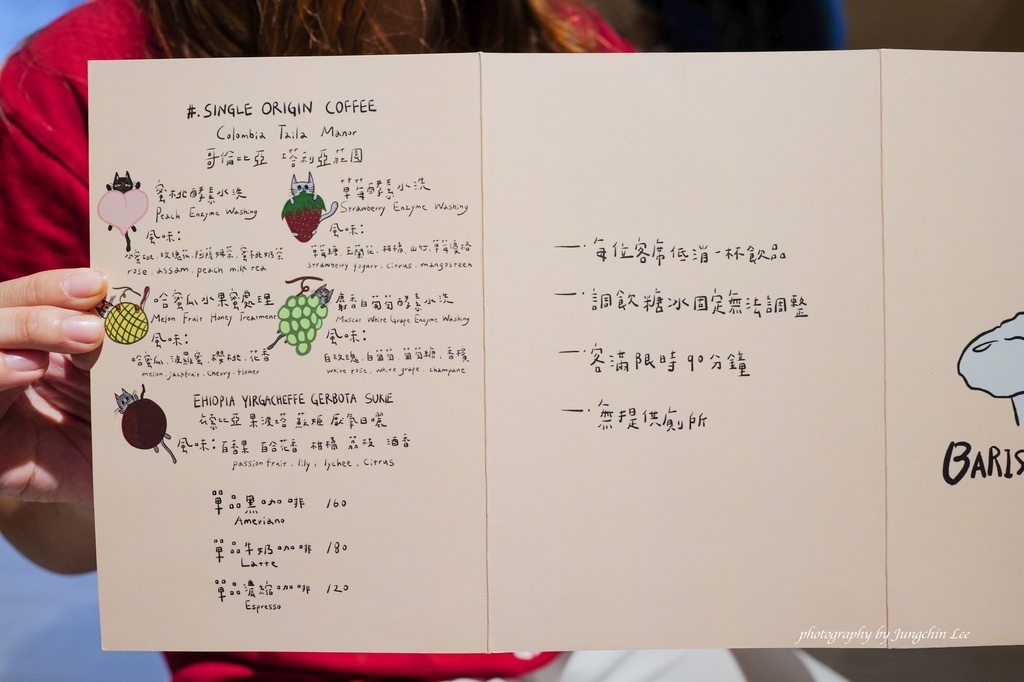 #. SINGLE ORIGIN COFFEE
Colombia Taila Manor
哥倫比亞 塔利亞莊園
蜜桃酵素水洗
Peach Enzyme Washing
風味:
水蜜桃、玫瑰花、阿薩姆茶、蜜桃奶茶
rose. assam. peach milk tea
草莓酵素水洗
Strawberry Enzyme Washing
風味:
草莓糖、玉蘭花、柑橘、山竹、草莓優格
strawberry yogurt. citrus. mangosteen
哈蜜瓜水果蜜處理
Melon Fruit Honey Treatment
風味:
哈蜜瓜、波羅蜜、櫻桃、花香
melon. jackfruit. cherry. flower
麝香白葡萄酵素水洗
Muscat White Grape Enzyme Washing
風味:
白玫瑰、白葡萄、葡萄糖、香檳
white rose. white grape. champane
EHIOPIA YIRGACHEFFE GERBOTA SUKE
衣索比亞 果波塔 蘇姬 厭氧日曬
風味: 百香果 百合花香 柑橘 荔枝 酒香
passion fruit. lily. lychee. Citrus
單品黑咖啡 160
Ameriano
單品牛奶咖啡 180
Latte
單品濃縮咖啡 120
Espresso
一.每位客席低消一杯飲品
一.調飲糖冰固定無法調整
一.客滿限時90分鐘
一.無提供廁所
BARIS
photography by Jungchin Lee